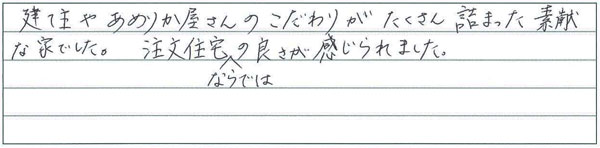 建て主やあめりか屋さんのこだわりがたくさん詰まった素献
な家でした。 注文住宅の良さが感じられました。
ならでは